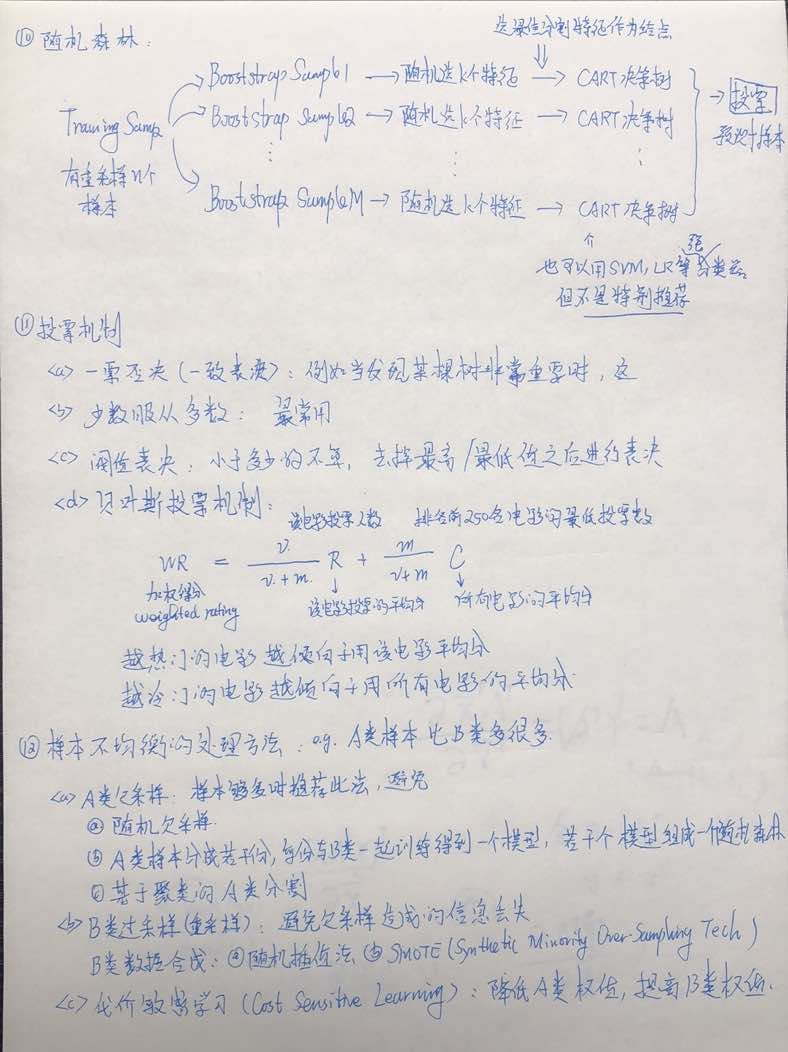 选最佳分割特征作为结点
⑩ 随机森林：
Bootstrap Sample1 → 随机选k个特征 → CART决策树
Training Sample Bootstrap Sample2 → 随机选k个特征 → CART决策树 → 投票
有重采样n个 预测样本
样本
Bootstrap SampleM → 随机选k个特征 → CART决策树
也可以用SVM, LR等 类器
但不是特别推荐
⑪ 投票机制
<a> 一票否决（一致表决）：例如当发现某棵树非常重要时，这
<b> 少数服从多数：最常用
<c> 阈值表决：小于多少的不算，去掉最高/最低值之后进行表决
<d> 贝叶斯投票机制：
该电影投票人数 排名前250名电影的最低投票数
WR = v/(v+m) R + m/(v+m) C
加权得分 该电影投票的平均分 所有电影的平均分
weighted rating
越热门的电影越倾向于用该电影平均分
越冷门的电影越倾向于用所有电影的平均分
⑫ 样本不均衡的处理方法：e.g. A类样本比B类多很多.
<a> A类欠采样：样本够多时推荐此法，避免
ⓐ 随机欠采样.
ⓑ A类样本分成若干份，每份与B类一起训练得到一个模型，若干个模型组成一个随机森林
ⓒ 基于聚类的A类分割
<b> B类过采样(重采样)：避免欠采样造成的信息丢失
B类数据合成：ⓐ随机插值法 ⓑ SMOTE (Synthetic Minority Over-Sampling Tech)
<c> 代价敏感学习 (Cost Sensitive Learning)：降低A类权值，提高B类权值.